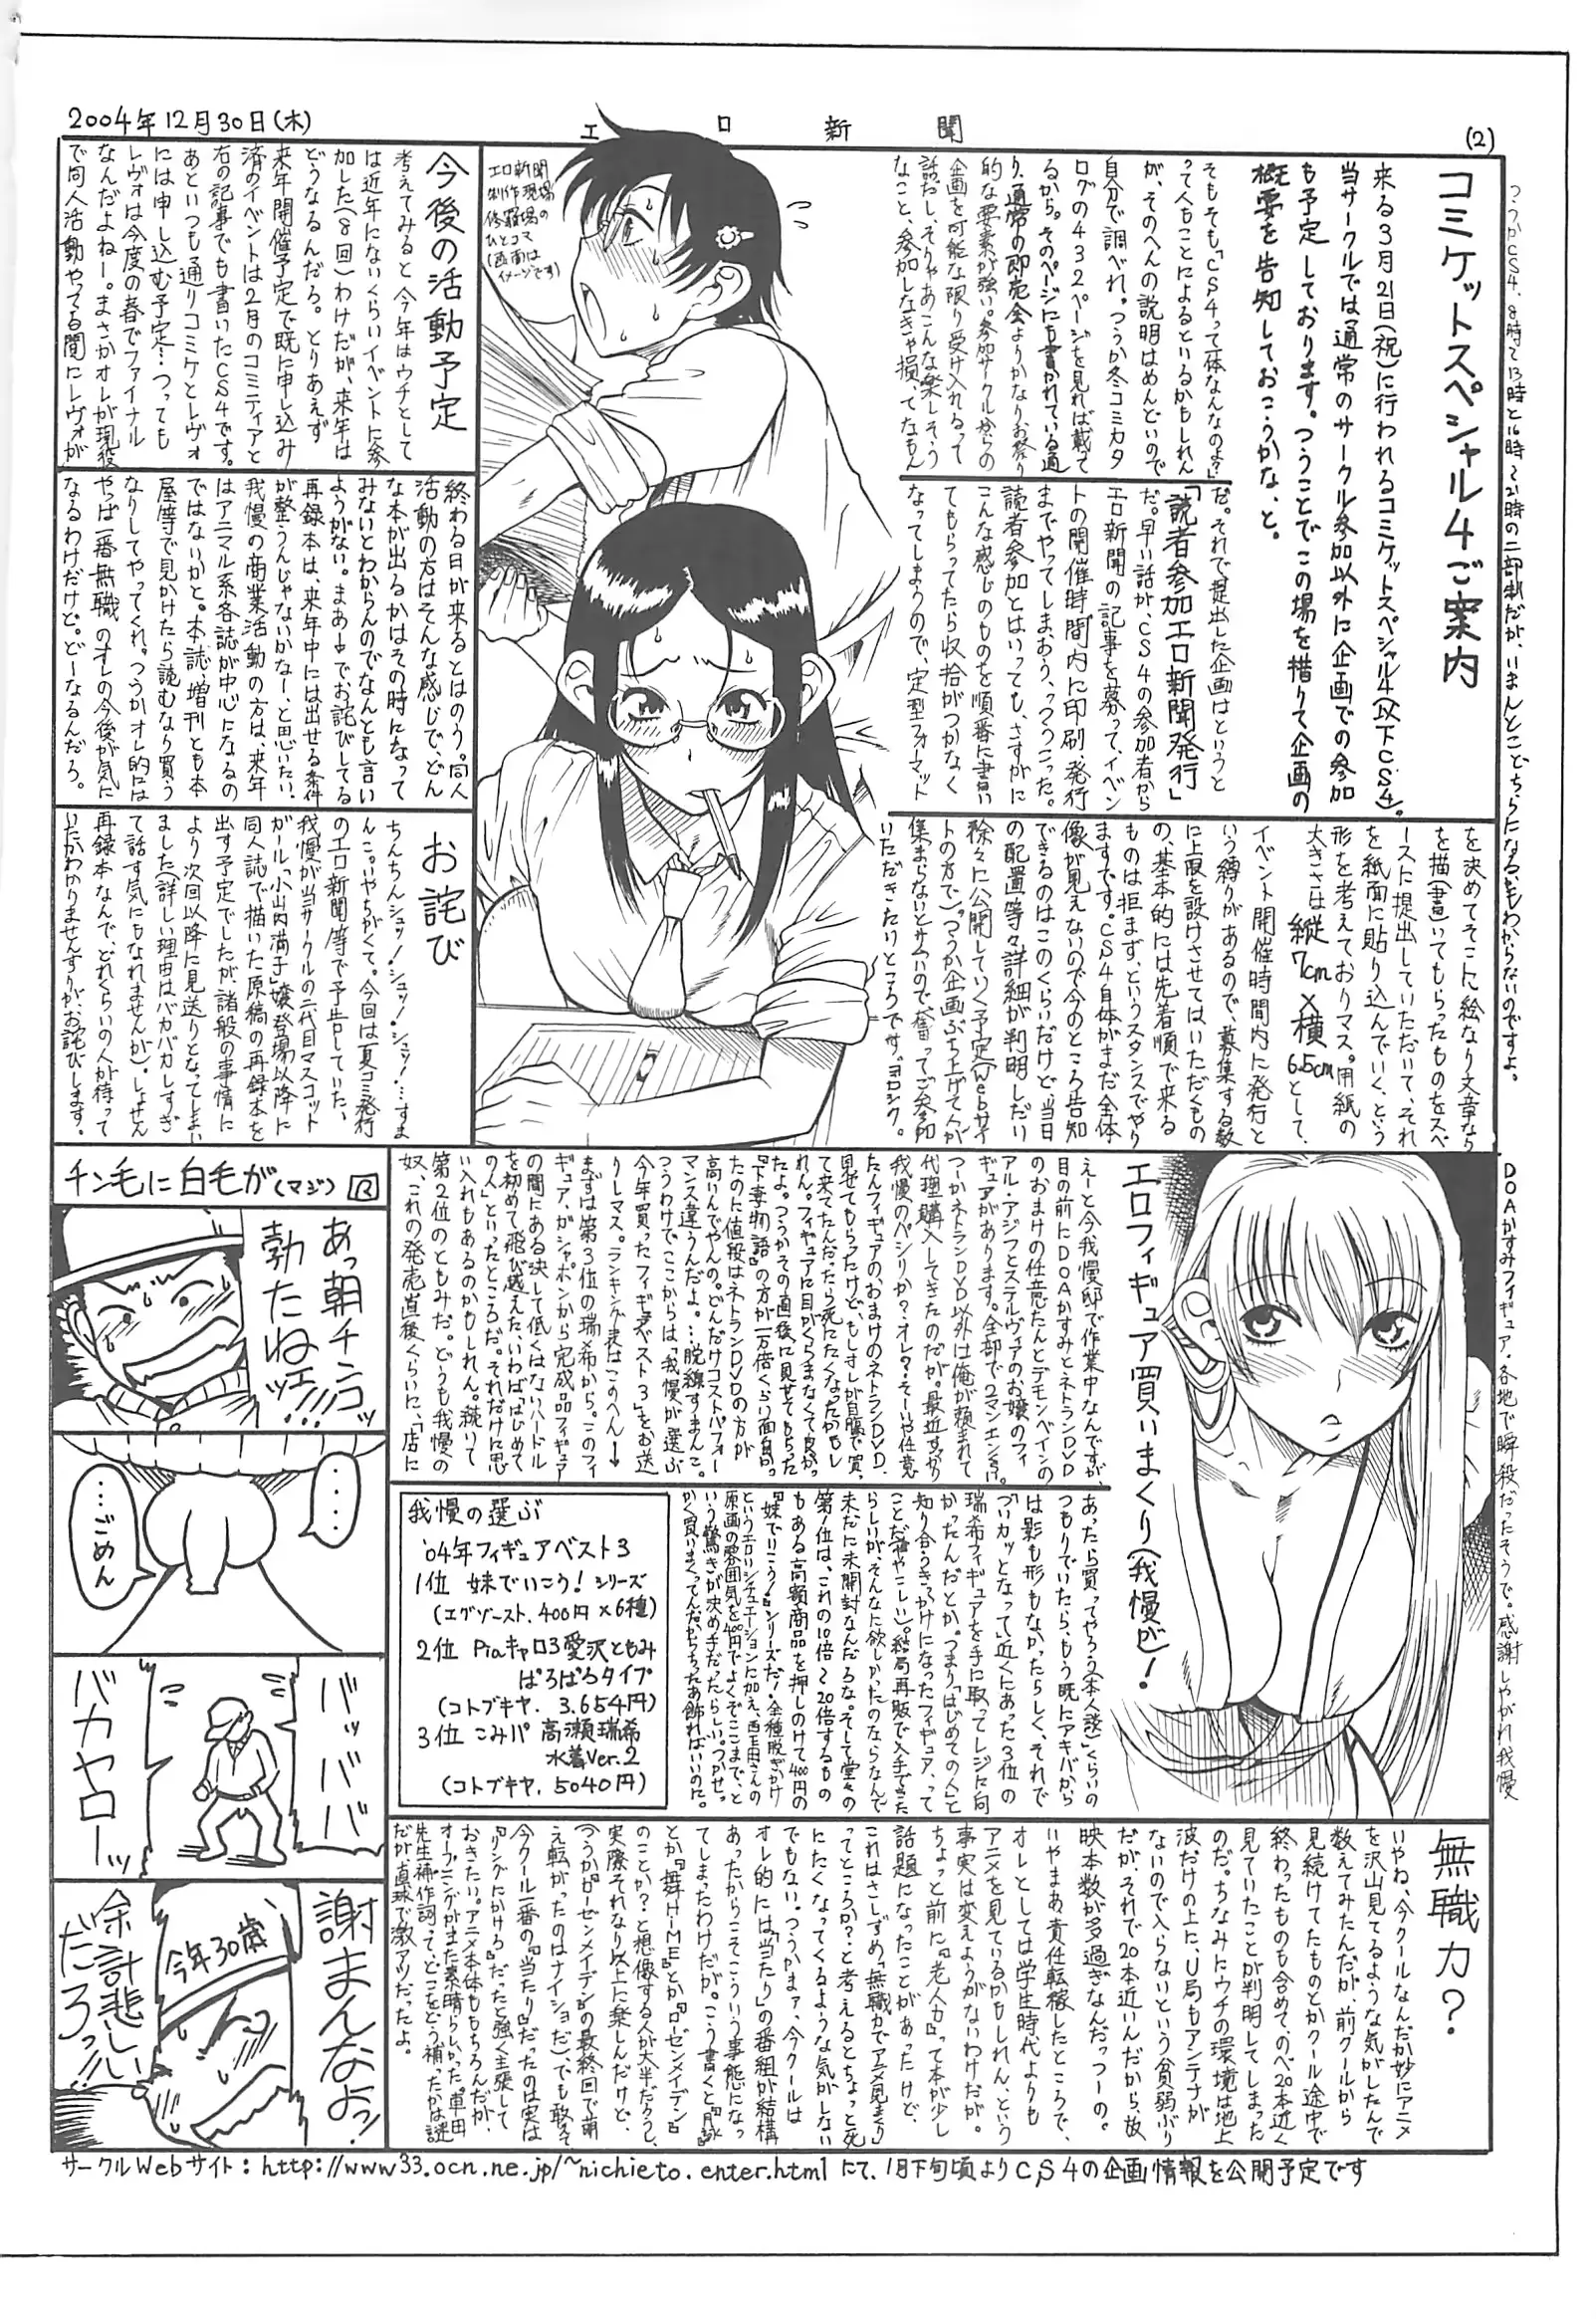 2004年12月30日(木)
エロ新聞
(2)
つうかCS4、8時〜13時と16時〜21時の二部制だが、いまんとこどちらになるかもわからないのですよ。
コミケットスペシャル4ご案内
来る3月21日(祝)に行われるコミケットスペシャル4(以下CS4)。
当サークルでは通常のサークル参加以外に企画での参加
も予定しております。つうことでこの場を借りて企画の
概要を告知しておこうかな、と。
そもそも「CS4って一体なんなのよ?」
って人もことによるといるかもしれん
が、そのへんの説明はめんどいので
自分で調べれ。つうか冬コミカタ
ログの432ページを見れば載って
るから。そのページにも書かれている通
り、通常の即売会よりかなりお祭り
的な要素が強い。参加サークルからの
企画を可能な限り受け入れるって
話だし、そりゃあこんな楽しそう
なこと、参加しなきゃ損ってなもん
だ。それで提出した企画はというと
「読者参加エロ新聞発行」
だ。早い話が、CS4の参加者から
エロ新聞の記事を募って、イベン
トの開催時間内に印刷・発行
までやってしまおう、っつうこった。
読者参加とはいっても、さすがに
こんな感じのものを順番に書い
てもらってたら収拾がつかなく
なってしまうので、定型フォーマット
を決めてそこに絵なり文章なり
を描(書)いてもらったものをスペ
ースに提出していただいて、それ
を紙面に貼り込んでいく、という
形を考えておりマス。用紙の
大きさは縦7cm×横6.5cmとして、
イベント開催時間内に発行と
いう縛りがあるので、募集する数
に上限を設けさせてはいただくもの
の、基本的には先着順で来る
ものは拒まず、というスタンスでやり
ますです。CS4自体がまだ全体
像が見えないので今のところ告知
できるのはこのくらいだけど、当日
の配置等々詳細が判明しだい
徐々に公開していく予定(Webサイ
トの方で)。つうか企画ぶち上げて人が
集まらないとサムいので奮ってご参加
いただきたいところです。ヨロシク。
エロ新聞
制作現場
修羅場の
ひとコマ
(画面は
イメージです)
今後の活動予定
考えてみると今年はウチとして
は近年にないくらいイベントに参
加した(8回)わけだが、来年は
どうなるんだろ。とりあえず
来年開催予定で既に申し込み
済のイベントは2月のコミティアと
右の記事でも書いたCS4です。
あといつも通りコミケとレヴォ
には申し込む予定…つっても
レヴォは今度の春でファイナル
なんだよねー。まさかオレが現役
で同人活動やってる間にレヴォが
終わる日が来るとはのう。同人
活動の方はそんな感じで、どん
な本が出るかはその時になって
みないとわからんのでなんとも言い
ようがない。まあ↓でお詫びしてる
再録本は、来年中には出せる条件
が整うんじゃないかなー、と思いたい。
我慢の商業活動の方は、来年
はアニマル系各誌が中心になるの
ではないかと。本誌、増刊とも本
屋等で見かけたら読むなり買う
なりしてやってくれ。つうかオレ的には
やっぱ一番無職のオレの今後が気に
なるわけだけど。どーなるんだろ。
お詫び
ちんちんシュッ!シュッ!シュッ!…すま
んこ。いやちがくて。今回は夏コミ発行
のエロ新聞等で予告していた、
我慢が当サークルの二代目マスコット
ガール「小山内満子」嬢登場以降に
同人誌で描いた原稿の再録本を
出す予定でしたが、諸般の事情に
より次回以降に見送りとなってしまい
ました(詳しい理由はバカバカしすぎ
て話す気にもなれませんが)。しょせん
再録本なんで、どれくらいの人が待って
いたかわかりませんすりが、お詫びします。
DOAかすみフィギュア、各地で瞬殺だったそうで。感謝しやがれ我慢
エロフィギュア買いまくり(我慢が)!
えーと今我慢邸で作業中なんですが、
目の前にDOAかすみとネトランDVD
のおまけの任意たんとデモンベインの
アル・アジフとステルヴィアのお嬢のフィ
ギュアがあります。全部で2マンエン位?
つかネトランDVD以外は俺が頼まれて
代理購入してきたのだが。最近すっかり
我慢のパシリか?オレ?そーいや任意
たんフィギュアのおまけのネトランDVD、
見せてもらったけど、もしオレが自腹で買っ
て来てたんだったら死にたくなったかもし
れん。フィギュアに目がくらまなくて良かっ
たよ。つうかその直後に見せてもらった
『下妻物語』の方が一万倍くらい面白かっ
たのに値段はネトランDVDの方が
高いんでやんの。どんだけコストパフォー
マンス違うんだよ。…脱線すまんこ。
つうわけでここからは「我慢が選ぶ
今年買ったフィギュアベスト3」をお送
りしマス。ランキング表はこのへん→
まずは第3位の瑞×希から。このフィ
ギュア、ガシャポンから完成品フィギュア
の間にある決して低くはないハードル
を初めて飛び越えた、いわば「はじめて
の人」といったところだ。それだけに思
い入れもあるのかもしれん。続いて
第2位のともみだ。どうも我慢の
奴、これの発売直後くらいに、「店に
あったら買ってやろう(本人談)」くらいの
つもりでいたら、もう既にアキバから
は影も形もなかったらしく、それで
「ついカッとなって」近くにあった3位の
瑞×希フィギュアを手に取ってレジに向
かったんだとか。つまり「はじめての人」と
知り合うきっかけになったフィギュア、って
ことだ(ややこしい)。結局再販で入手できた
らしいが、そんなに欲しかったのならなんで
未だに未開封なんだろな。そして堂々の
第1位は、これの10倍〜20倍するもの
もある高額商品を押しのけて400円の
『妹でいこう!』シリーズだ!全種脱ぎかけ
というエロいシチュエーションに加え、西E田さんの
原画の雰囲気を400円でよくぞここまで、と
いう驚きが決め手だったらしい。つかせっ
かく買いまくってんだからちったあ飾ればいいのた。
我慢の選ぶ
'04年フィギュアベスト3
1位 妹でいこう!シリーズ
(エグゾースト、400円×6種)
2位 Piaキャロ3愛沢ともみ
ぱろぱろタイプ
(コトブキヤ、3,654円)
3位 こみパ 高瀬瑞希
水着Ver.2
(コトブキヤ、5040円)
無職力?
いやね、今クールなんだか妙にアニメ
を沢山見てるような気がしたんで
数えてみたんだが、前クールから
見続けてたものとかクール途中で
終わったものも含めて、のべ20本近く
見ていたことが判明してしまった
のだ。ちなみにウチの環境は地上
波だけの上に、U局もアンテナが
ないので入らないという貧弱ぶり
だが、それで20本近いんだから、放
映本数が多過ぎなんだっつーの。
いやまあ責任転嫁したところで、
オレとしては学生時代よりも
アニメを見ているかもしれん、という
事実は変えようがないわけだが。
ちょっと前に『老人力』って本が少し
話題になったことがあったけど、
これはさしずめ「無職力でアニメ見まくり」
ってところか?と考えるとちょっと死
にたくなってくるような気がしない
でもない。つうかまァ、今クールは
オレ的には「当たり」の番組が結構
あったからこそこういう事態になっ
てしまったわけだが。こう書くと『月詠』
とか『舞-HiME』とか『ローゼンメイデン』
のことか?と想像する人が大半だろうし、
実際それなり以上に楽しんだけど、
(つうか『ローゼンメイデン』の最終回で萌
え転がったのはナイショだ)、でも敢えて
今クール一番の「当たり」だったのは実は
『リングにかける』だったと強く主張して
おきたい。アニメ本体ももちろんだが、
オープニングがまた素晴らしかった。車田
先生補作詞って、どこをどう補ったかは謎
だが直球で激アツだったよ。
チン毛に白毛が(マジ)
あっ朝チンコッ
勃たねェーッ!!!
……
…ごめん
バッババ
バカヤローッ
謝まんなよッ!
今年30歳
余計悲しいだろっ!!
サークルWebサイト:http://www33.ocn.ne.jp/~nichieto.enter.htmlにて、1月下旬頃よりCS4の企画情報を公開予定です